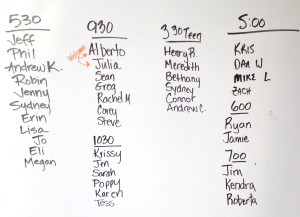 530
Jeff
Phil
Andrew K.
Robin
Jenny
Sydney
Erin
Lisa
Jo
Eli
Megan
930
Welcome
Alberto
Julia
Sean
Greg
Rachel M
Carey
Steve
1030
Krissy
Jen
Sarah
Poppy
Karen
Tess
3 30 Teen
Henry P.
Meredith
Bethany
Sydney
Connor
Andrew C.
5:00
KRIS
DAN W
MIKE L
ZACH
600
Ryan
Jamie
700
Jim
Kendra
Roberta